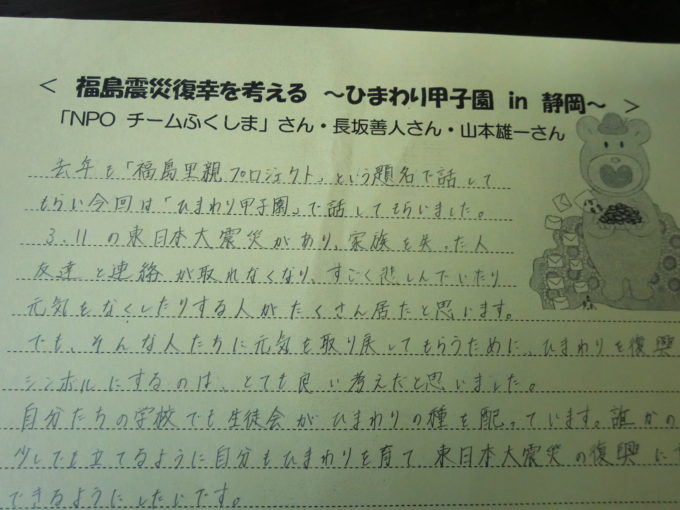 < 福島震災復幸を考える ～ひまわり甲子園 in 静岡～ >
「NPO チームふくしま」さん・長坂善人さん・山本雄一さん
去年も「福島里親プロジェクト」という題名で話して
もらい今回は「ひまわり甲子園」で話してもらいました。
3.11の東日本大震災があり、家族を失った人
友達と連絡が取れなくなり、すごく悲しんでいたり
元気をなくしたりする人がたくさん居たと思います。
でも、そんな人たちに元気を取り戻してもらうために、ひまわりを復興
シンボルにするのは、とても良い考えだと思いました。
自分たちの学校でも生徒会がひまわりの種を配っています。誰かの
少しでも立てるように自分もひまわりを育て東日本大震災の復興に
できるようにしたいです。